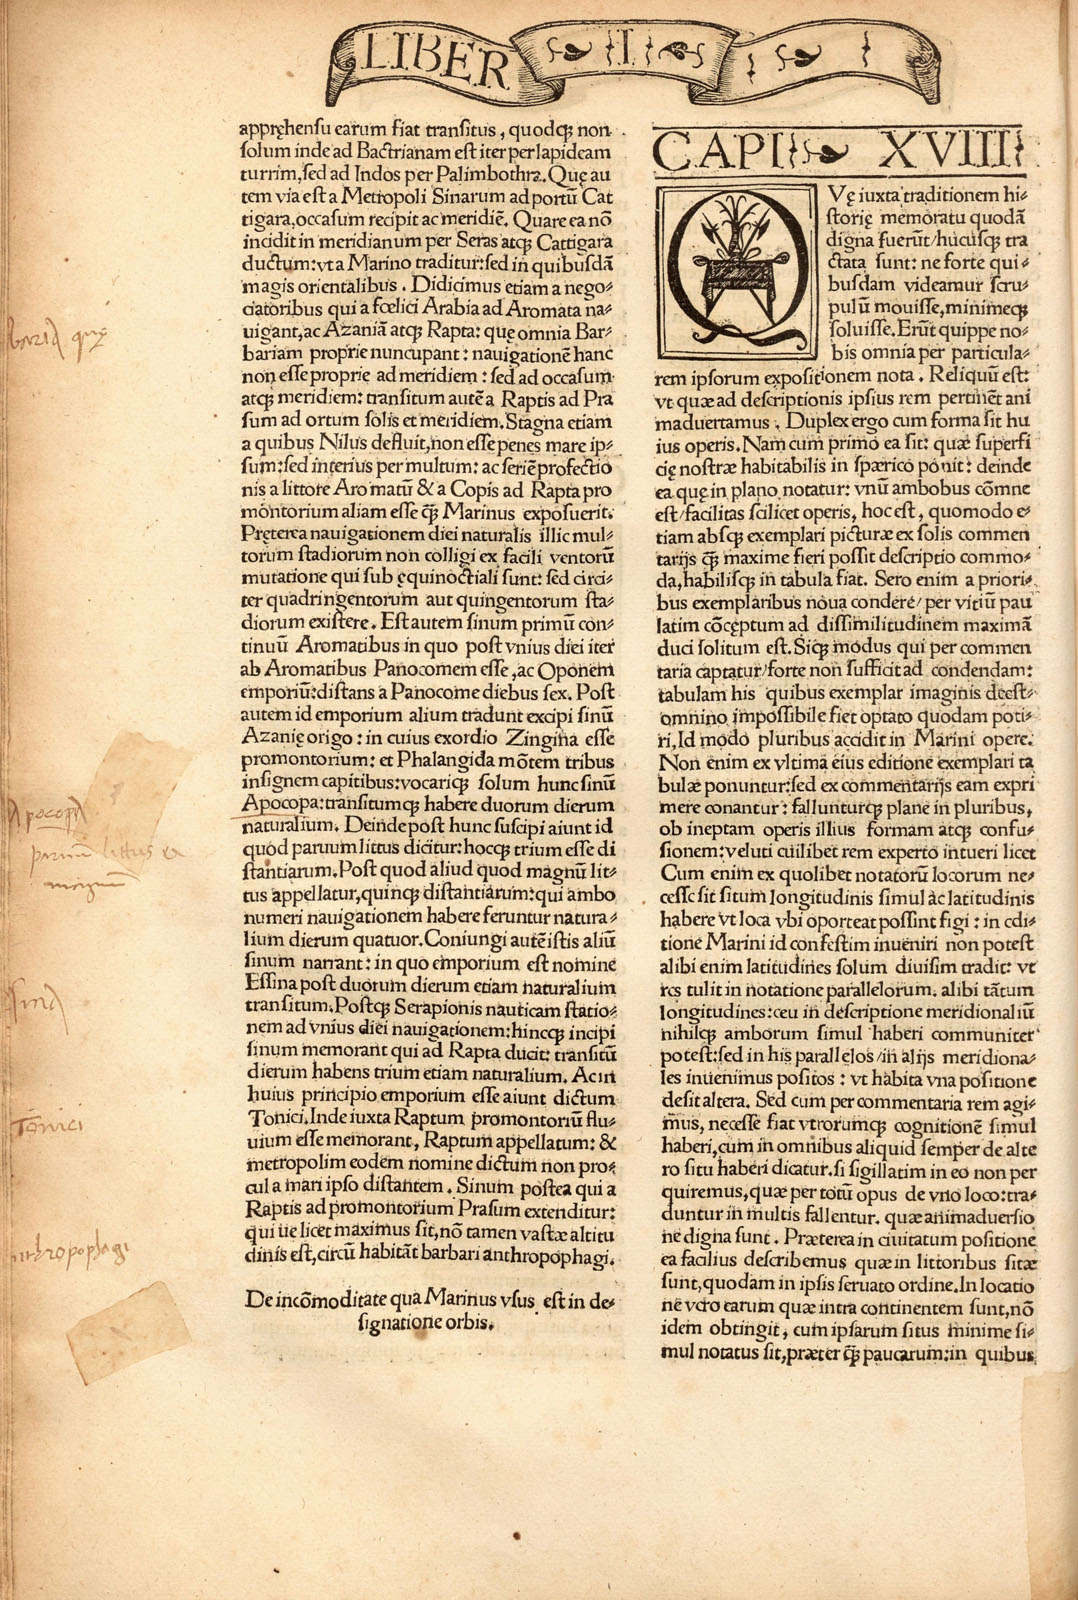 LIBER I
appręhensu earum fiat transitus, quodqꝫ non
solum inde ad Bactrianam est iter per lapideam
turrim, sed ad Indos per Palimbothra. Quę au
tem via est a Metropoli Sinarum ad portũ Cat
tigara, occasum recipit ac meridiẽ. Quare ea nõ
incidit in meridianum per Seras atqꝫ Cattigara
ductum: vt a Marino traditur: sed in quibusdã
magis orientalibus. Didicimus etiam a nego⸗
ciatoribus qui a fœlici Arabia ad Aromata na⸗
uigant, ac Azaniã atqꝫ Rapta: quę omnia Bar⸗
bariam proprie nuncupant: nauigationẽ hanc
non esse proprie ad meridiem: sed ad occasum
atqꝫ meridiem: transitum autẽ a Raptis ad Pra
sum ad ortum solis et meridiem. Stagna etiam
a quibus Nilus defluit, non esse penes mare ip⸗
sum: sed interius per multum: ac seriẽ profectio
nis a littore Aromatũ & a Copis ad Rapta pro
montorium aliam esse qꝫ̃ Marinus exposuerit.
Pręterea nauigationem diei naturalis illic mul⸗
torum stadiorum non colligi ex facili ventorũ
mutatione qui sub ęquinoctiali sunt: sed circi⸗
ter quadringentorum aut quingentorum sta⸗
diorum existere. Est autem sinum primũ con⸗
tinuũ Aromatibus in quo post vnius diei iter
ab Aromatibus Panocomem esse, ac Oponem
emporiũ: distans a Panocome diebus sex. Post
autem id emporium alium tradunt excipi sinũ
Azanię origo: in cuius exordio Zingina esse
promontorium: et Phalangida mõtem tribus
insignem capitibus: vocariqꝫ solum hunc sinũ
Apocopa: transitumqꝫ habere duorum dierum
naturalium. Deinde post hunc suscipi aiunt id
quod paruum littus dicitur: hocqꝫ trium esse di
stantiarum. Post quod aliud quod magnũ lit⸗
tus appellatur, quinqꝫ distantiarum: qui ambo
numeri nauigationem habere feruntur natura⸗
lium dierum quatuor. Coniungi autẽ istis aliũ
sinum narrant: in quo emporium est nomine
Essina post duorum dierum etiam naturalium
transitum. Postqꝫ Serapionis nauticam statio⸗
nem ad vnius diei nauigationem: hincqꝫ incipi
sinum memorant qui ad Rapta ducit: transitũ
dierum habens trium etiam naturalium. Ac in
huius principio emporium esse aiunt dictum
Tonici. Inde iuxta Raptum promontoriũ flu⸗
uium esse memorant, Raptum appellatum: &
metropolim eodem nomine dictum non pro⸗
cul a mari ipso distantem. Sinum postea qui a
Raptis ad promontorium Prasum extenditur:
qui ue licet maximus sit, nõ tamen vastæ altitu
dinis est, circũ habitãt barbari anthropophagi.
De incõmoditate qua Marinus vsus est in de⸗
signatione orbis.
CAPI XVIIII
QVę iuxta traditionem hi⸗
storię memoratu quodã
digna fuerũt/hucusqꝫ tra
ctata sunt: ne forte qui⸗
busdam videamur scru⸗
pulũ mouisse, minimeqꝫ
soluisse. Erũt quippe no⸗
bis omnia per particula⸗
rem ipsorum expositionem nota. Reliquũ est:
vt quæ ad descriptionis ipsius rem pertinẽt ani
maduertamus. Duplex ergo cum forma sit hu
ius operis. Nam cum primo ea sit: quæ superfi
cię nostræ habitabilis in spærico ponit: deinde
ea quę in plano notatur: vnũ ambobus cõmne
est/facilitas scilicet operis, hoc est, quomodo e⸗
tiam absqꝫ exemplari picturæ ex solis commen
tarijs qꝫ̃ maxime fieri possit descriptio commo⸗
da, habilisqꝫ in tabula fiat. Sero enim a priori⸗
bus exemplaribus noua condere/per vitiũ pau
latim cõcęptum ad dissimilitudinem maximã
duci solitum est. Siqꝫ modus qui per commen
taria captatur/forte non sufficit ad condendam:
tabulam his quibus exemplar imaginis deest⸗
omnino impossibile fiet optato quodam poti⸗
ri, Id modo pluribus accidit in Marini opere.
Non enim ex vltima eius editione exemplari ta
bulæ ponuntur: sed ex commentarijs eam expri
mere conantur: fallunturqꝫ plane in pluribus,
ob ineptam operis illius formam atqꝫ confu⸗
sionem: veluti cuilibet rem experto intueri licet
Cum enim ex quolibet notatorũ locorum ne⸗
cesse sit situm longitudinis simul ac latitudinis
habere vt loca vbi oporteat possint figi: in edi⸗
tione Marini id confestim inueniri non potest
alibi enim latitudines solum diuisim tradit: vt
res tulit in notatione parallelorum. alibi tãtum
longitudines: ceu in descriptione meridionaliũ
nihilqꝫ amborum simul haberi communiter
potest: sed in his parallelos/in alijs meridiona⸗
les inuenimus positos: vt habita vna positione
desit altera. Sed cum per commentaria rem agi⸗
mus, necesse fiat vtrorumqꝫ cognitionẽ simul
haberi, cum in omnibus aliquid semper de alte
ro situ haberi dicatur. si sigillatim in eo non per
quiremus, quæ per totũ opus de vno loco: tra⸗
duntur in multis fallentur. quæ animaduersio
ne digna sunt. Præterea in ciuitatum positione
ea facilius describemus quæ in littoribus sitæ
sunt, quodam in ipsis seruato ordine. In locatio
ne vero earum quæ intra continentem sunt, nõ
idem obtingit, cum ipsarum situs minime si⸗
mul notatus sit, præter qꝫ̃ paucarum: in quibus
Apocopa
paruum littus &
magnum
Tonici
anthropophagi